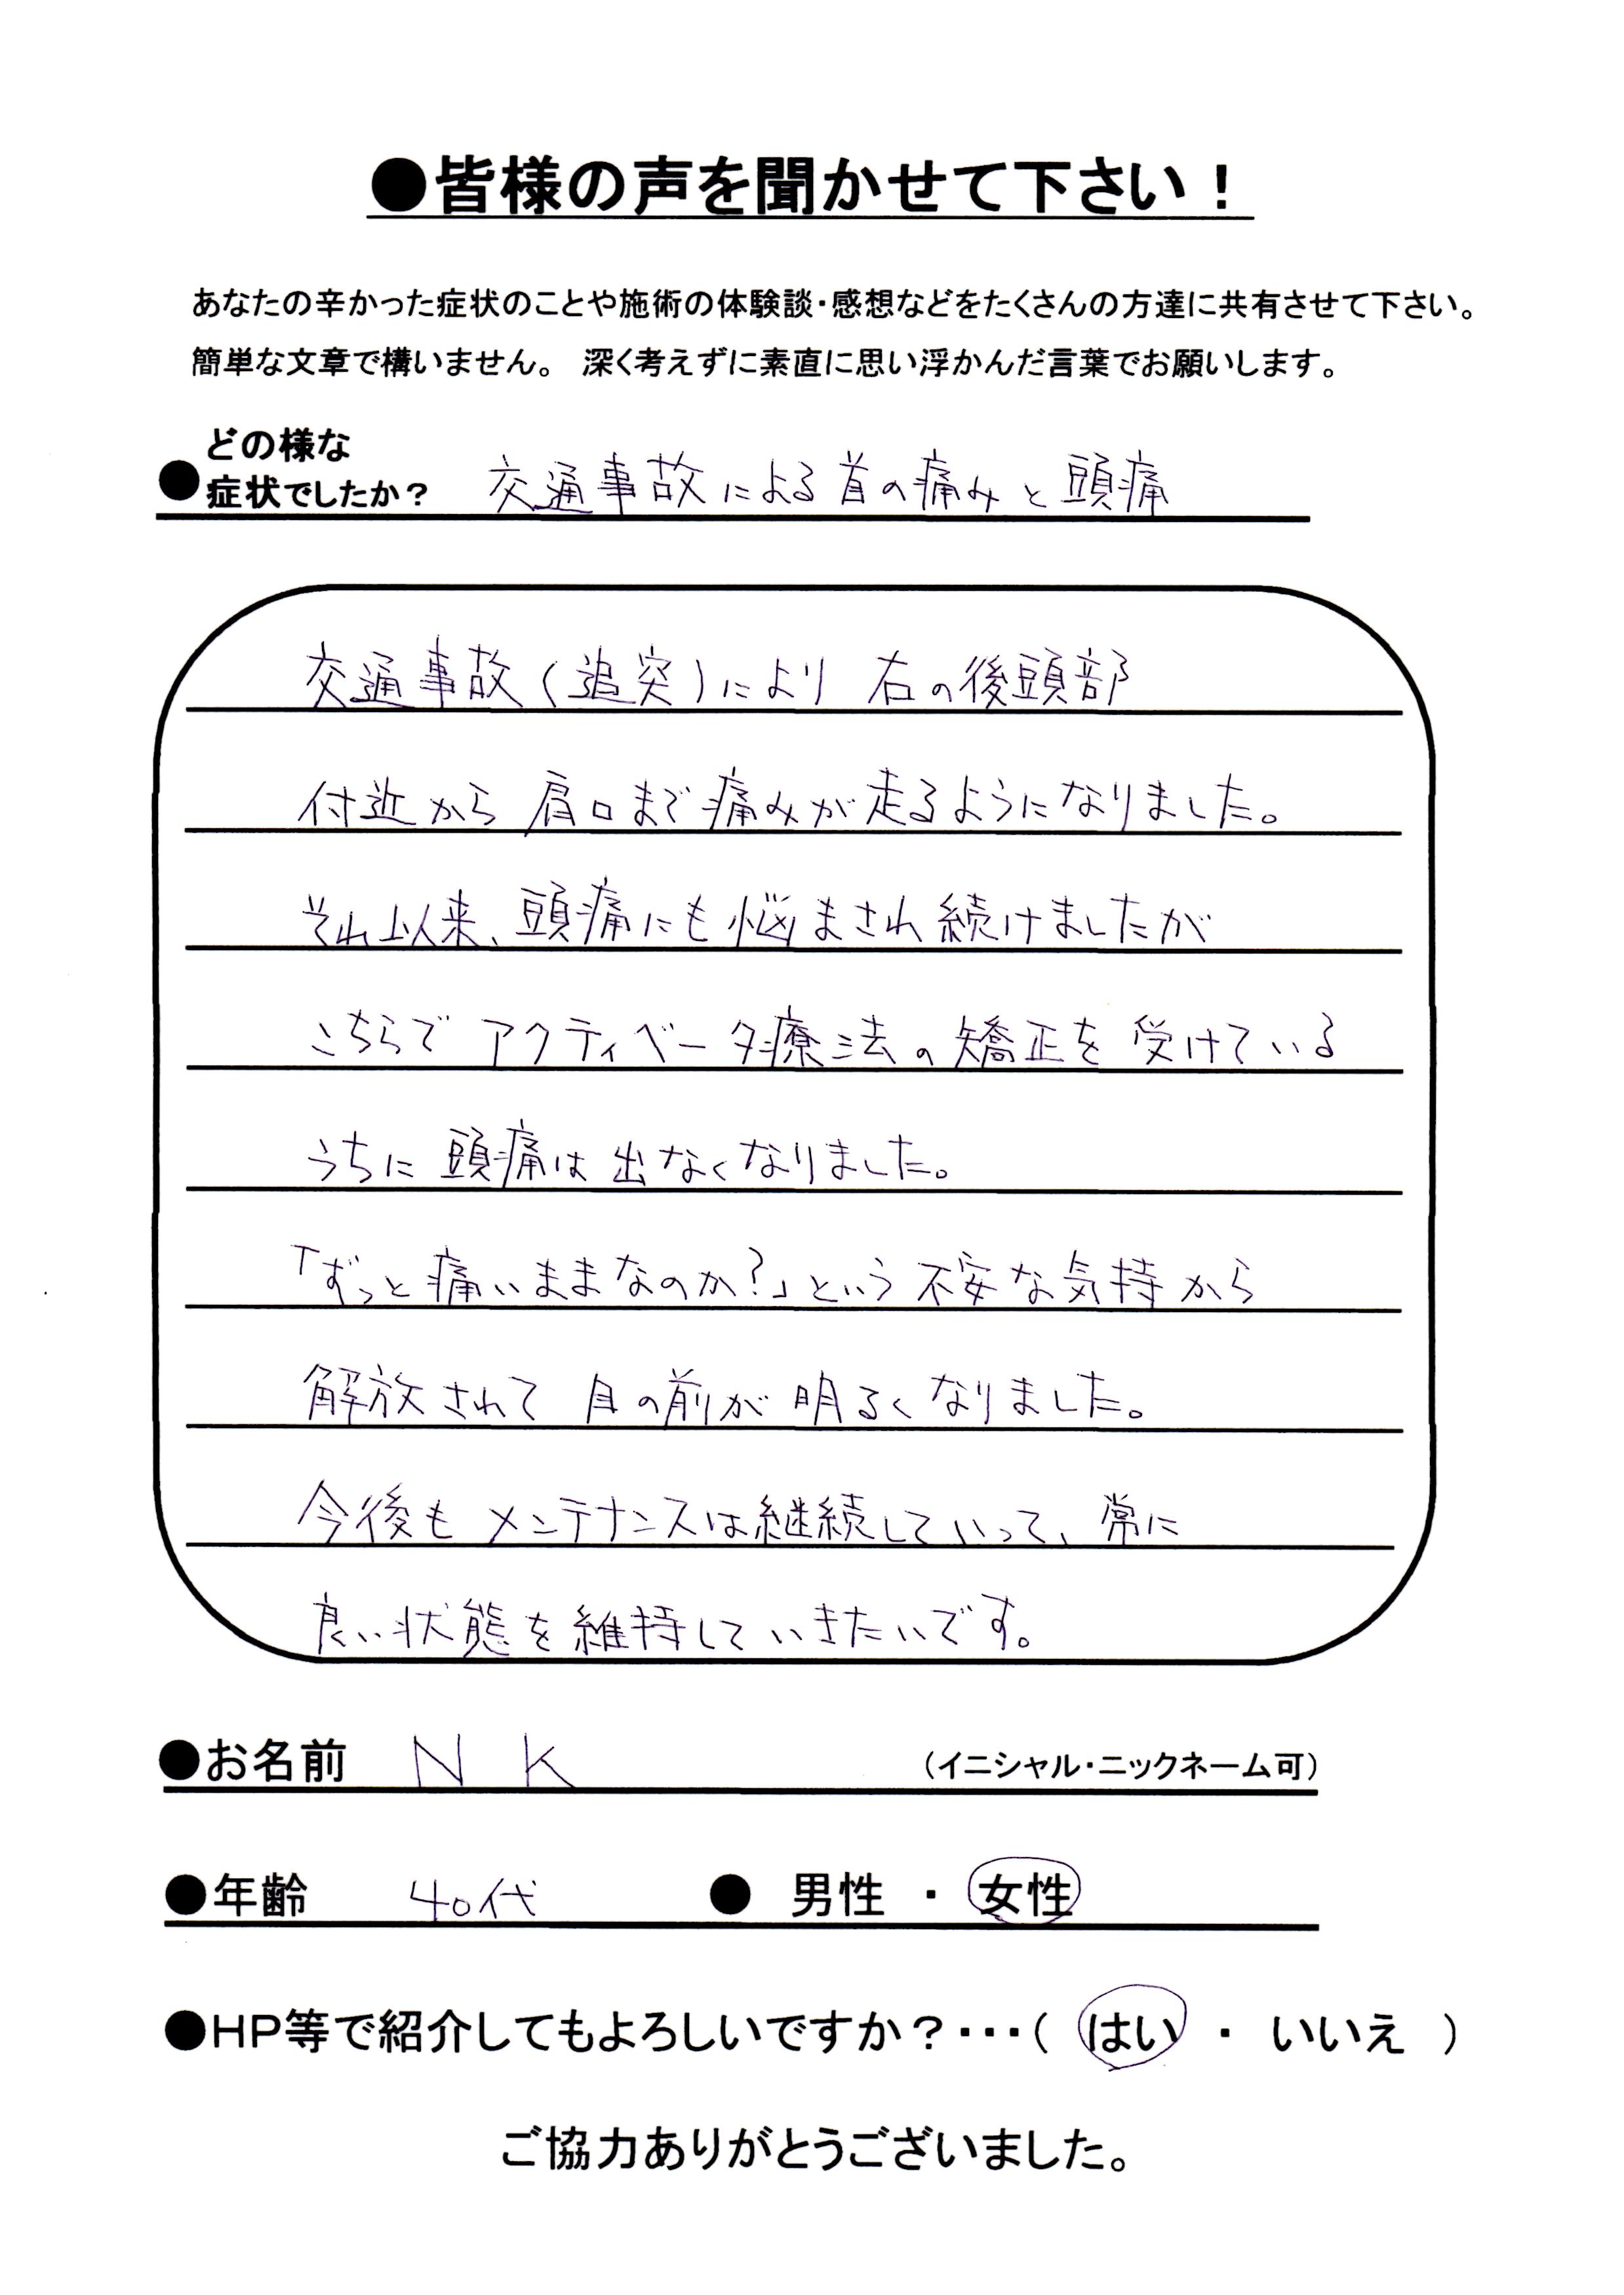 ●皆様の声を聞かせて下さい！
あなたの辛かった症状のことや施術の体験談・感想などをたくさんの方達に共有させて下さい。
簡単な文章で構いません。 深く考えずに素直に思い浮かんだ言葉でお願いします。
●どの様な
症状でしたか？ 交通事故による首の痛みと頭痛
交通事故(追突)により 右の後頭部
付近から 肩口まで痛みが走るようになりました。
それ以来、頭痛にも悩まされ続けましたが
こちらで アクティベータ療法の矯正を受けている
うちに 頭痛は出なくなりました。
「ずっと痛いままなのか?」という不安な気持から
解放されて 目の前が明るくなりました。
今後もメンテナンスは継続していって、常に
良い状態を維持していきたいです。
●お名前 N K （イニシャル・ニックネーム可）
●年齢 40代 ● 男性 ・ 女性
●HP等で紹介してもよろしいですか？・・・（ はい ・ いいえ ）
ご協力ありがとうございました。